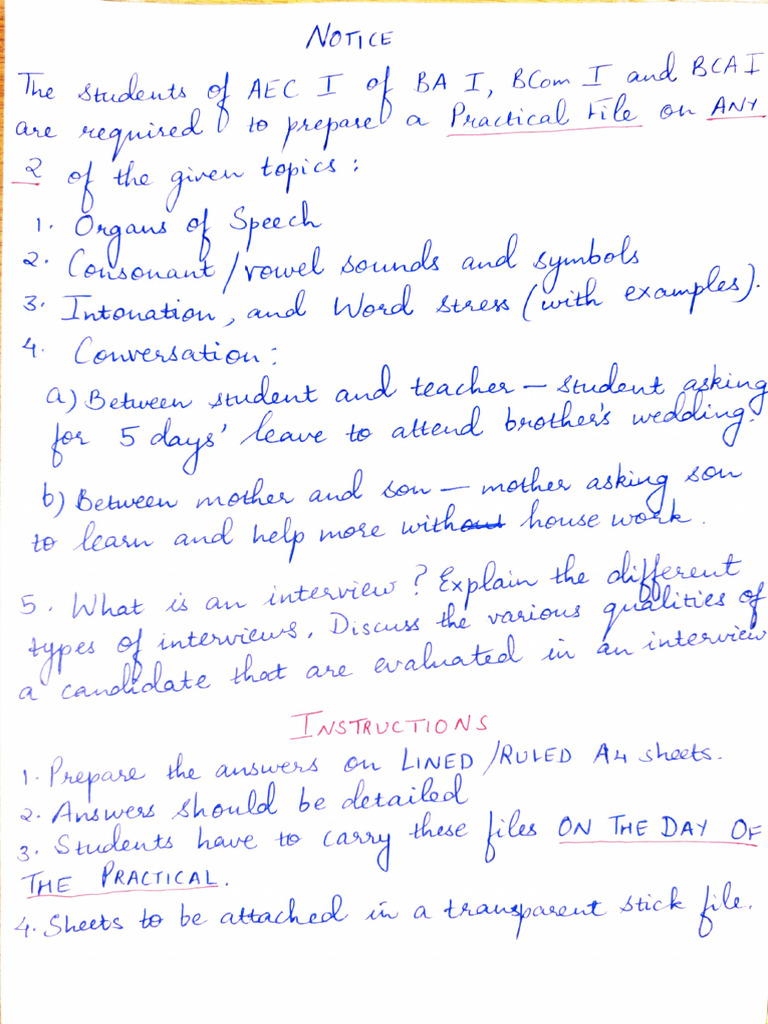 NOTICE
The students of AEC I of BA I, BCom I and BCA I
are required to prepare a Practical File on ANY
2 of the given topics :
1. Organs of Speech
2. Consonant / vowel sounds and symbols
3. Intonation, and Word stress (with examples).
4. Conversation :
a) Between student and teacher – student asking
for 5 days' leave to attend brother's wedding.
b) Between mother and son – mother asking son
to learn and help more with house work.
5. What is an interview? Explain the different
types of interviews. Discuss the various qualities of
a candidate that are evaluated in an interview
INSTRUCTIONS
1. Prepare the answers on LINED / RULED A4 sheets.
2. Answers should be detailed
3. Students have to carry these files ON THE DAY OF
THE PRACTICAL.
4. Sheets to be attached in a transparent stick file.